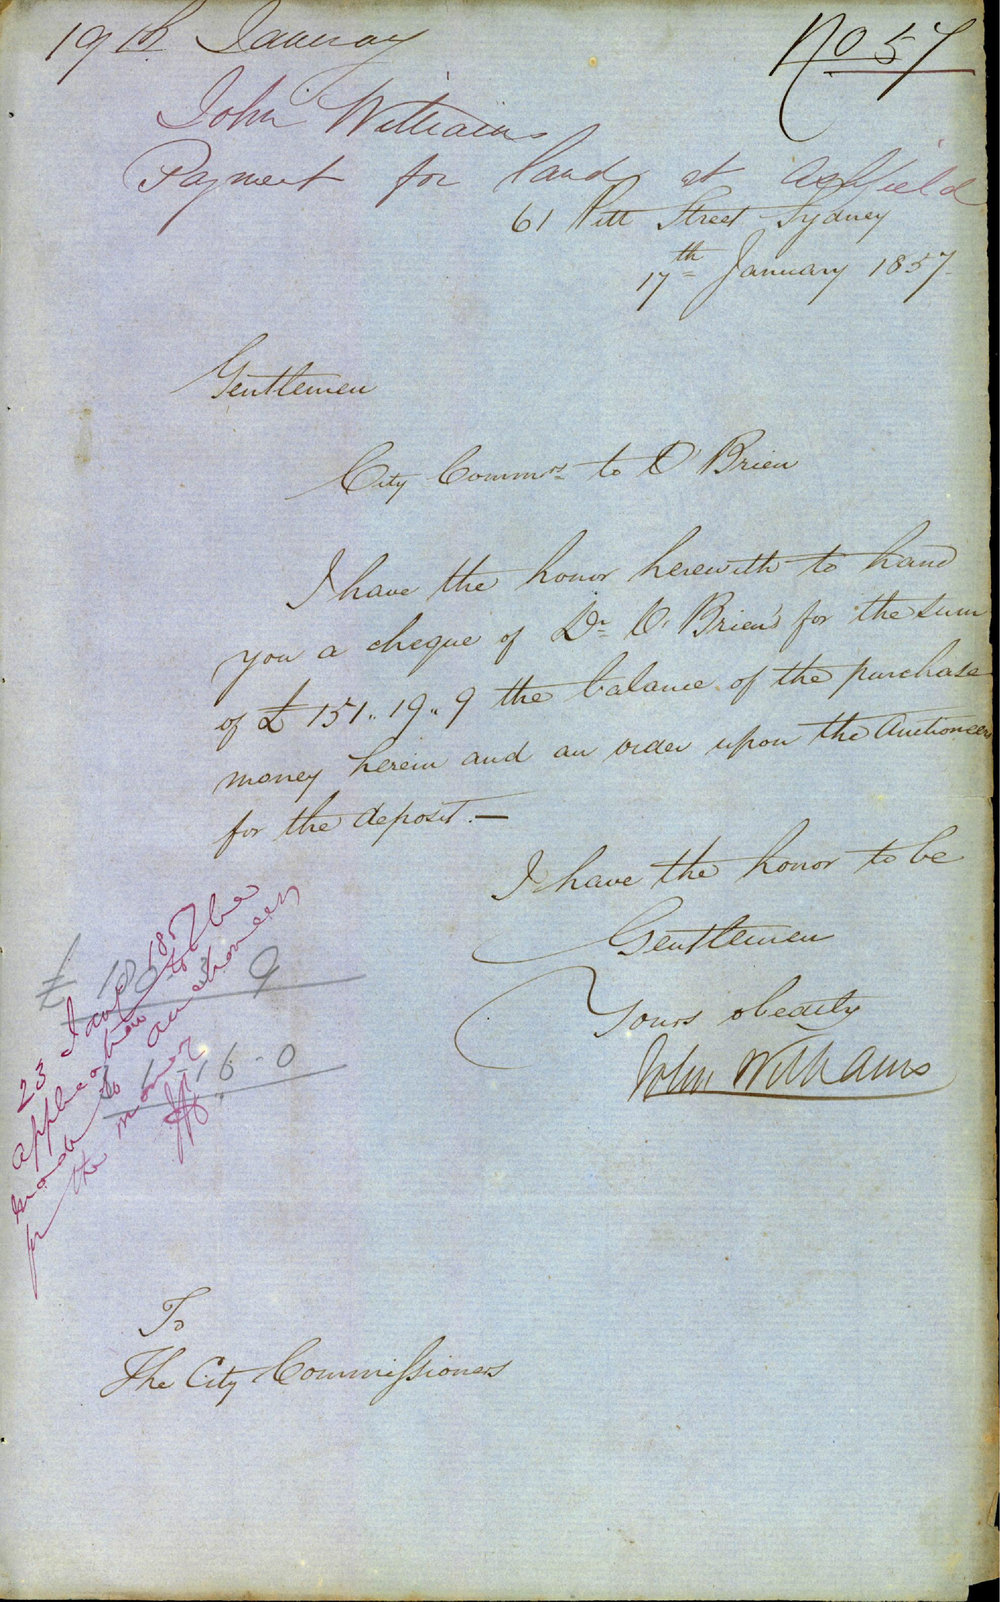 19th January
No 57
John Williams
Payment for land at Ashfield
61 Pitt Street Sydney
17th January 1857
Gentlemen
City Commrs to O'Brien
I have the honor herewith to hand
you a cheque of Dr O'Brien's for the sum
of £151..19..9 the balance of the purchase
money herein and an order upon the Auctioneers
for the deposit.—
I have the honor to be
Gentlemen
Yours obedtly
John Williams
£ 180 3 9
1 16 0
23 Jany 1857
application to be
made to auctioneers
for the money
To
The City Commissioners